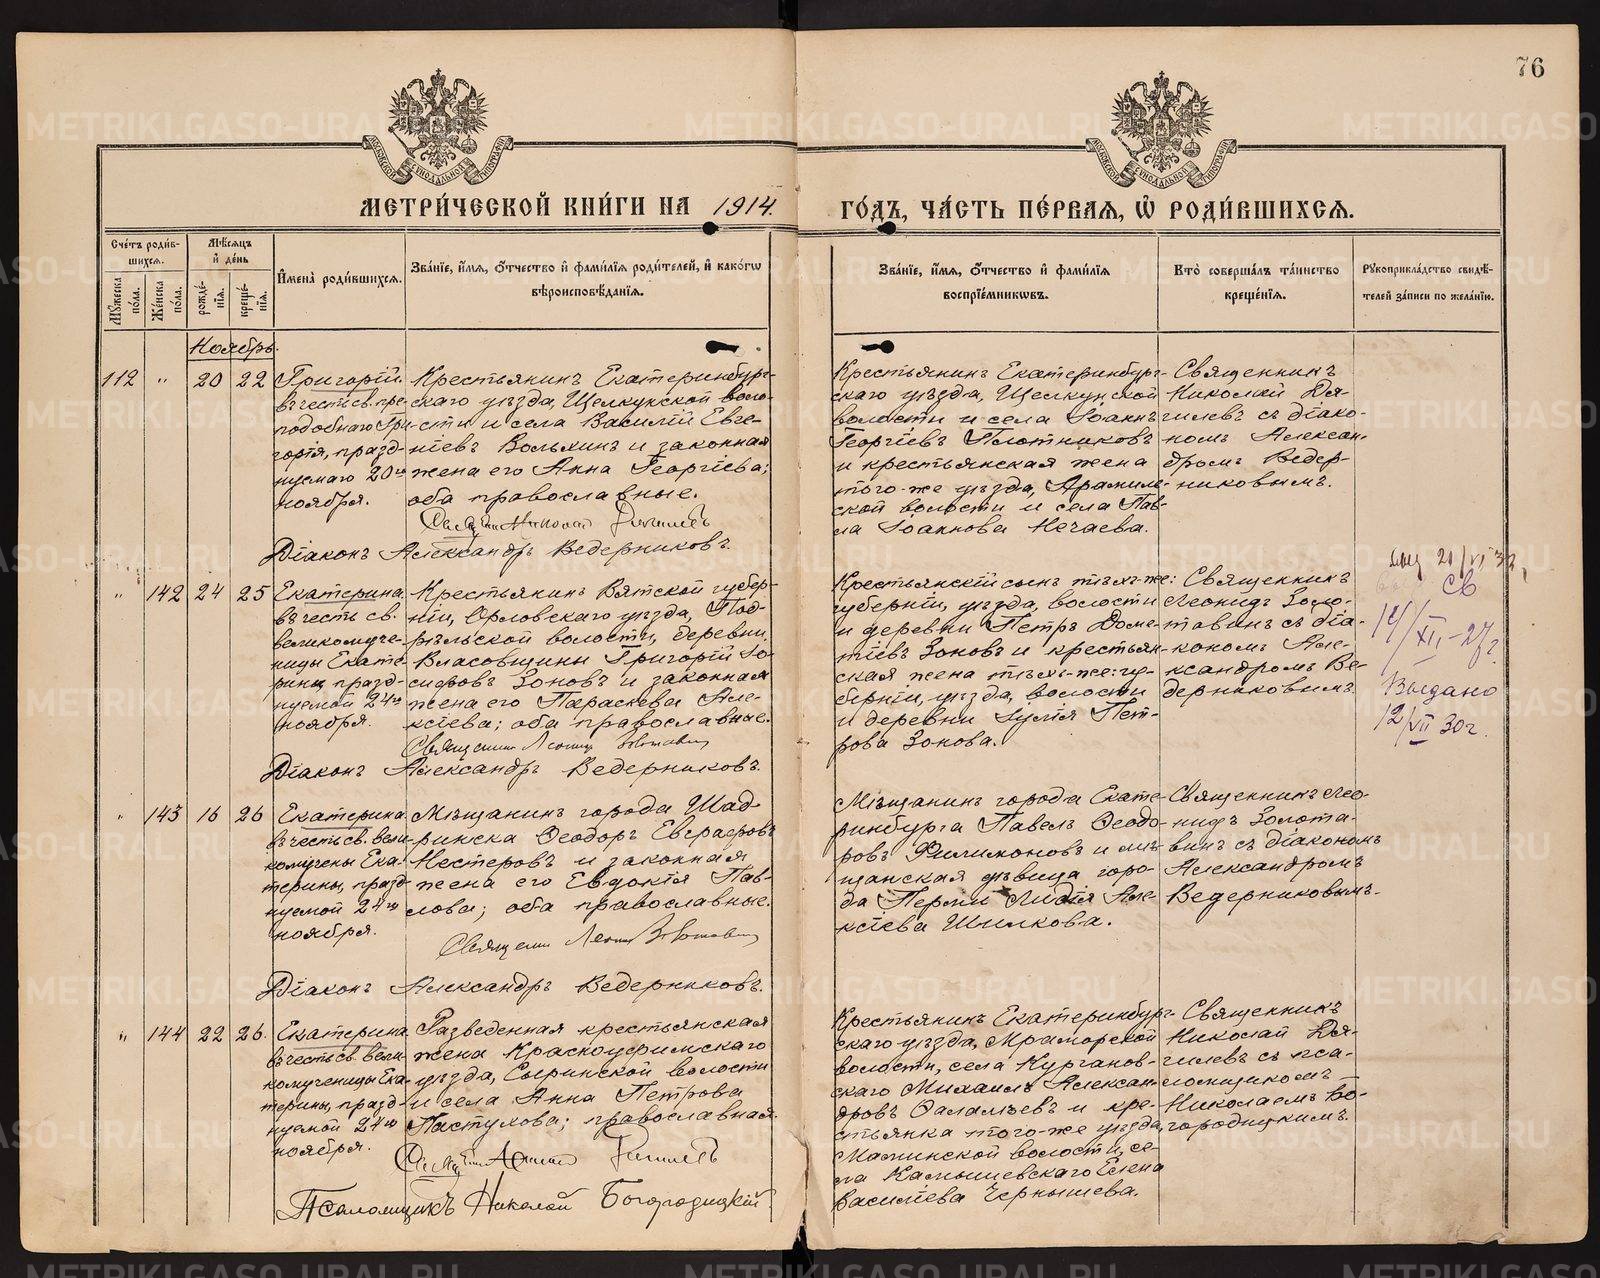 76
МЕТРИ́ЧЕСКОЙ КНИ́ГИ НА 1914.
ГО́ДЪ, ЧА́СТЬ ПЕ́РВАЯ, Ѡ РОДИ́ВШИХСЯ.
МОСКОВСКОЙ СѴНОДАЛЬНОЙ ТИПОГРАФІИ
МОСКОВСКОЙ СѴНОДАЛЬНОЙ ТИПОГРАФІИ
Счетъ родив-
шихся.
Мужеска
пола.
Женска
пола.
Мѣсяцъ
и день
рожде-
нія.
креще-
нія.
Имена родившихся.
Званіе, имя, отчество и фамилія родителей, и какогω
вѣроисповѣданія.
Званіе, имя, отчество и фамилія
воспріемниковъ.
Кто совершалъ таинство
крещенія.
Рукоприкладство свидѣ-
телей записи по желанію.
Ноябрь.
112 " 20 22
Григорій.
въ честь св. пре-
подобнаго Гри-
горія, празд-
нуемаго 20го
ноября.
Крестьянинъ Екатеринбург-
скаго уѣзда, Щелкунской воло-
сти и села Василій Евге-
ніевъ Вольхинъ и законная
жена его Анна Георгіева;
оба православные.
Діаконъ Александръ Ведерниковъ.
Крестьянинъ Екатеринбург-
скаго уѣзда, Щелкунской
волости и села Іоаннъ
Георгіевъ Плотниковъ
и крестьянская жена
того-же уѣзда, Арамиль-
ской волости и села Пав-
ла Іоаннова Нечаева.
Священникъ
Николай Дя-
гилевъ съ діако-
номъ Алексан-
дромъ Ведер-
никовымъ.
" 142 24 25
Екатерина
въ честь св.
великомуче-
ницы Екате-
рины празд-
нуемой 24го
ноября.
Крестьянинъ Вятской губер-
ніи, Орловскаго уѣзда, Под-
рѣльской волости, деревни
Власовщины Григорій Іо-
сифовъ Зоновъ и законная
жена его Параскева Але-
ксіева; оба православные.
Діаконъ Александръ Ведерниковъ.
Крестьянскій сынъ тѣхъ-же:
губерніи, уѣзда, волости
и деревни Петръ Доме-
тіевъ Зоновъ и крестьян-
ская жена тѣхъ-же: гу-
берніи, уѣзда, волости
и деревни Іулія Пет-
рова Зонова.
Священникъ
Леонидъ Золо-
тавинъ съ діа-
кономъ Але-
ксандромъ Ве-
дерниковымъ.
СВ
14/XII-27г.
Выдано
12/VII 30г.
" 143 16 26
Екатерина
въ честь св. вели-
комучены Ека-
терины, празд-
нуемой 24го
ноября.
Мѣщанинъ города Шад-
ринска Ѳеодоръ Евграфовъ
Нестеровъ и законная
жена его Евдокія Пав-
лова; оба православные.
Діаконъ Александръ Ведерниковъ.
Мѣщанинъ города Екате-
ринбурга Павелъ Ѳеодо-
ровъ Филимоновъ и мѣ-
щанская дѣвица горо-
да Перми Лидія Але-
ксіева Шилкова.
Священникъ Лео-
нидъ Золота-
винъ съ діакономъ
Александромъ
Ведерниковымъ.
" 144 22 26.
Екатерина
въ честь св. вели-
комученицы Ека-
терины, празд-
нуемой 24го
ноября.
Разведенная крестьянская
жена Красноуфимскаго
уѣзда, Сыринской волости
и села Анна Петрова
Пастухова; православная.
Псаломщикъ Николай Богородицкій
Крестьянинъ Екатеринбург-
скаго уѣзда, Мраморской
волости, села Курганов-
скаго Михаилъ Алексан-
дровъ Фаламѣевъ и кре-
стьянка того-же уѣзда,
Маминской волости, се-
ла Камышевскаго Елена
Василіева Чернышева.
Священникъ
Николай Дя-
гилевъ съ пса-
ломщикомъ
Николаемъ Бо-
городицкимъ.